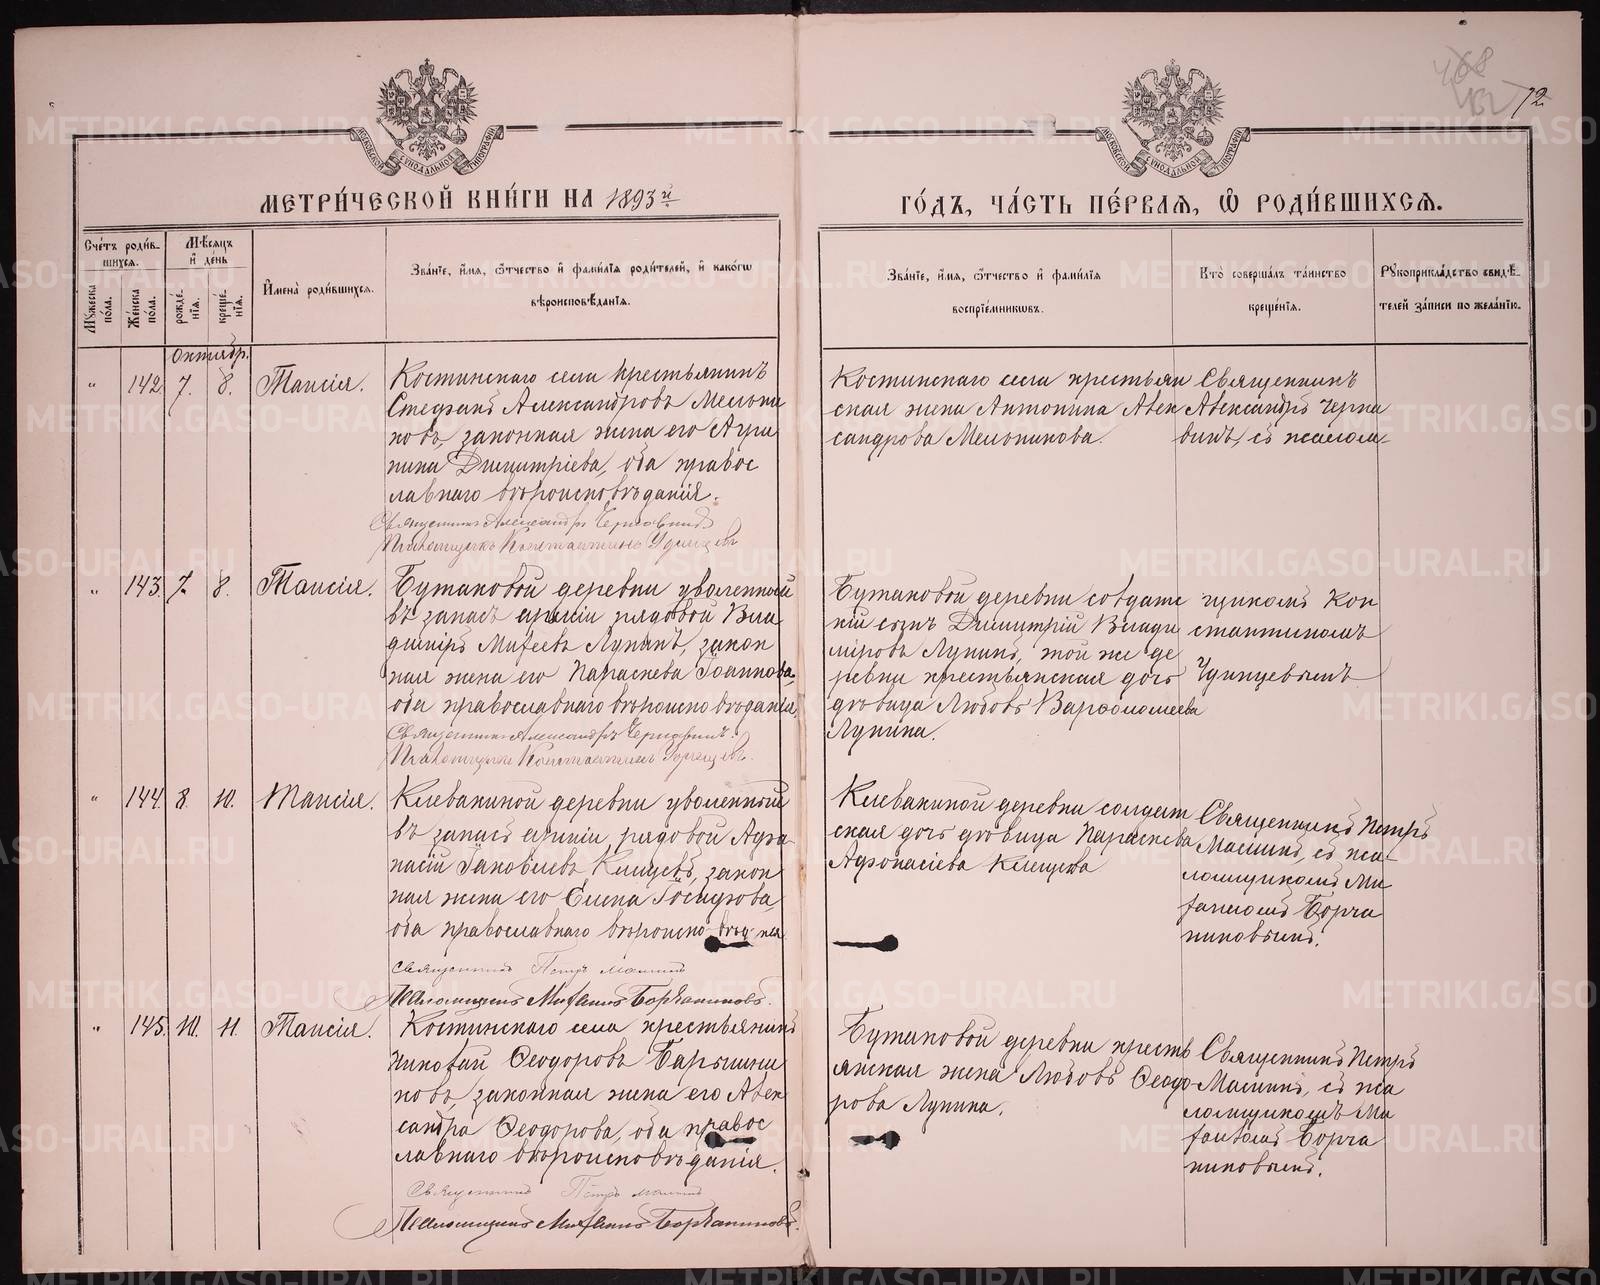 468
12
МОСКОВСКОЙ СѴНОДАЛЬНОЙ ТИПОГРАФІИ
МОСКОВСКОЙ СѴНОДАЛЬНОЙ ТИПОГРАФІИ
МЕТРИ́ЧЕСКОЙ КНИ́ГИ НА 1893й
ГО́ДЪ, ЧА́СТЬ ПЕ́РВАЯ, Ѽ РОДИ́ВШИХСЯ.
Сче́тъ роди́в-
шихся.
Му́жеска по́ла.
Же́нска по́ла.
Мѣ́сяцъ
и҆ де́нь
рожде́-
нїя.
креще́-
нїя.
И҆мена̀ роди́вшихся.
Зва́нїе, и҆́мя, ѻ҆́тчество и҆ фами́лїя роди́телей, и҆ како́гѡ
вѣроисповѣ́данїя.
Зва́нїе, и҆́мя, ѻ҆́тчество и҆ фами́лїя
воспрїе́мникѡвъ.
Кто̀ соверша́лъ та́инство
креще́нїя.
Рꙋкоприкла́дство свидѣ́-
телей за́писи по жела́нїю.
Октябр.
" 142. 7. 8. Таисія.
Костинскаго села крестьянинъ
Стефанъ Александровъ Мельни
ковъ, законная жена его Агри
пина Димитріева, оба правос
лавнаго вѣроисповѣданія.
Священникъ Александръ
Псаломщикъ Константинъ Удинцевъ
Костинскаго села крестьян
ская жена Антонина Алек
сандрова Мельникова.
Священникъ
Александръ Черна
винъ, съ псалом
" 143. 7. 8. Таисія.
Бутаковой деревни уволенный
въ запасъ арміи рядовой Вла
диміръ Матѳеевъ Лунинъ, закон
ная жена его Параскева Іоаннова,
оба православнаго вѣроисповѣданія.
Священникъ Александръ
Псаломщикъ Константинъ Удинцевъ.
Бутаковой деревни солдатс
кій сынъ Димитрій Влади
міровъ Лунинъ, той же де
ревни крестьянская дочь
дѣвица Любовь Варѳоломеева
Лунина.
щикомъ Кон
стантиномъ
Удинцевымъ
" 144. 8. 10. Таисія.
Клевакиной деревни уволенный
въ запасъ арміи рядовой Афа
насій Іаковлевъ Клещевъ, закон
ная жена его Елена Ісидрова,
оба православнаго вѣроисповѣд-нія
Священникъ Петръ
Псаломщикъ
Клевакиной деревни солдат
ская дочь дѣвица Параскева
Афонасіева Клещева
Священникъ Петръ
съ пса-
ломщикомъ Ми
хаиломъ Борча
ниновымъ.
" 145. 10. 11. Таисія.
Костинскаго села крестьянинъ
Николай Ѳеодоровъ Барышни
ковъ, законная жена его Алек
сандра Ѳеодорова, оба правос
лавнаго вѣроисповѣданія.
Священникъ Петръ
Псаломщикъ
Бутаковой деревни кресть
янская жена Любовь Ѳеодо
рова Лунина.
Священникъ Петръ
съ пса
ломщикомъ Ми
хаиломъ Борча
ниновымъ.
METRIKI.GASO-URAL.RU